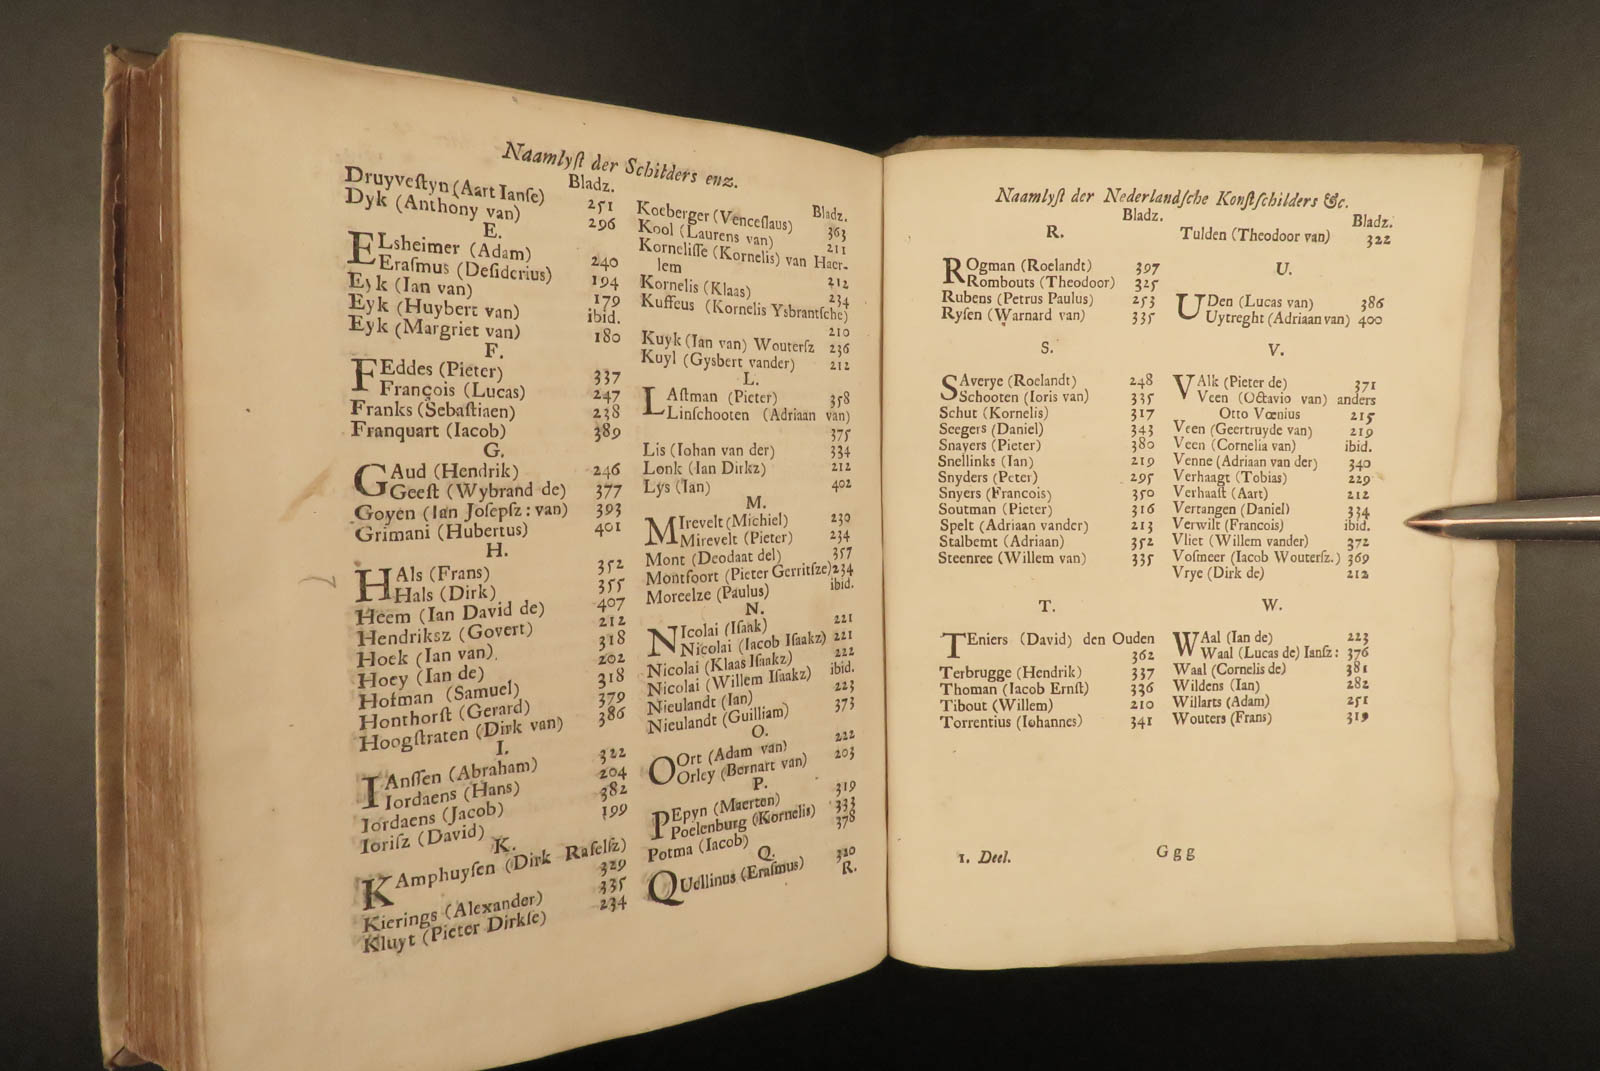 Naamlyſt der Schilders enz.
Bladz.
Druyveſtyn (Aart Ianſe) 251
Dyk (Anthony van) 296
E.
ELsheimer (Adam) 240
Eraſmus (Deſiderius) 194
Eyk (Ian van) 179
Eyk (Huybert van) ibid.
Eyk (Margriet van) 180
F.
FEddes (Pieter) 337
François (Lucas) 247
Franks (Sebaſtiaen) 238
Franquart (Iacob) 389
G.
GAud (Hendrik) 246
Geeſt (Wybrand de) 377
Goyen (Ian Joſepſz: van) 393
Grimani (Hubertus) 401
H.
HAls (Frans) 352
Hals (Dirk) 355
Heem (Ian David de) 407
Hendriksz (Govert) 212
Hoek (Ian van) 318
Hoey (Ian de) 202
Hofman (Samuel) 318
Honthorſt (Gerard) 379
Hoogſtraten (Dirk van) 386
I.
IAnſſen (Abraham) 322
Iordaens (Hans) 204
Iordaens (Jacob) 382
Ioriſz (David) 199
K.
KAmphuyſen (Dirk Rafelſz)
329
Kierings (Alexander) 335
Kluyt (Pieter Dirkſe) 234
Bladz.
Koeberger (Venceſlaus) 363
Kool (Laurens van) 211
Korneliſſe (Kornelis) van Haer-
lem 212
Kornelis (Klaas) 234
Kuffeus (Kornelis Ysbrantſche)
210
Kuyk (Ian van) Wouterſz 236
Kuyl (Gysbert vander) 212
L.
LAſtman (Pieter) 358
Linſchooten (Adriaan van)
375
Lis (Iohan van der) 334
Lonk (Ian Dirkz) 212
Lys (Ian) 402
M.
MIrevelt (Michiel) 230
Mirevelt (Pieter) 234
Mont (Deodaat del) 357
Montfoort (Pieter Gerritſze) 234
Moreelze (Paulus) ibid.
N.
NIcolai (Iſaak) 221
Nicolai (Iacob Iſaakz) 221
Nicolai (Klaas Iſaakz) 222
Nicolai (Willem Iſaakz) ibid.
Nieulandt (Ian) 223
Nieulandt (Guilliam) 373
O.
OOrt (Adam van) 222
Orley (Bernart van) 203
P.
PEpyn (Maerten) 319
Poelenburg (Kornelis) 333
Potma (Iacob) 378
Q.
QUellinus (Eraſmus) 320
R.
Naamlyſt der Nederlandſche Konſtſchilders &c.
Bladz.
R.
ROgman (Roelandt) 397
Rombouts (Theodoor) 325
Rubens (Petrus Paulus) 253
Ryſen (Warnard van) 335
S.
SAverye (Roelandt) 248
Schooten (Ioris van) 335
Schut (Kornelis) 317
Seegers (Daniel) 343
Snayers (Pieter) 380
Snellinks (Ian) 219
Snyders (Peter) 295
Snyers (Francois) 350
Soutman (Pieter) 316
Spelt (Adriaan vander) 213
Stalbemt (Adriaan) 352
Steenree (Willem van) 335
T.
TEniers (David) den Ouden
362
Terbrugge (Hendrik) 337
Thoman (Iacob Ernſt) 336
Tibout (Willem) 210
Torrentius (Iohannes) 341
Bladz.
Tulden (Theodoor van) 322
U.
UDen (Lucas van) 386
Uytreght (Adriaan van) 400
V.
VAlk (Pieter de) 371
Veen (Octavio van) anders
Otto Vœnius 215
Veen (Geertruyde van) 219
Veen (Cornelia van) ibid.
Venne (Adriaan van der) 340
Verhaagt (Tobias) 229
Verhaaſt (Aart) 212
Vertangen (Daniel) 334
Verwilt (Francois) ibid.
Vliet (Willem vander) 372
Voſmeer (Iacob Wouterſz.) 369
Vrye (Dirk de) 212
W.
WAal (Ian de) 223
Waal (Lucas de) Ianſz: 376
Waal (Cornelis de) 381
Wildens (Ian) 282
Willarts (Adam) 251
Wouters (Frans) 319
1. Deel.
Ggg